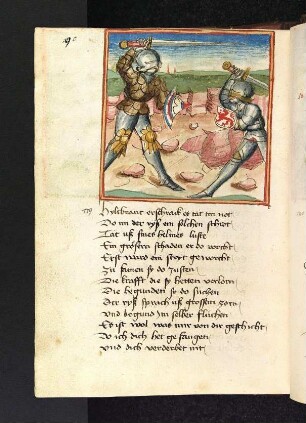 190
779 Hyltbrant erschrack es tät im not
Do im der ryß ein solchen schiet
Tät uß sines helmes luste
Ein grösern schaden er do vorcht
Erst ward ein stryt geworcht
Zů samen sy do Justen
Die krafft die sy hetten verlorn
Die begunden sy do sůchen
Der ryß sprach uß grossem zorn
Und begund im selber flůchen
Es ist wol was mir von dir geschicht
Do ich dich het gefangen
Und dich verderbet nit